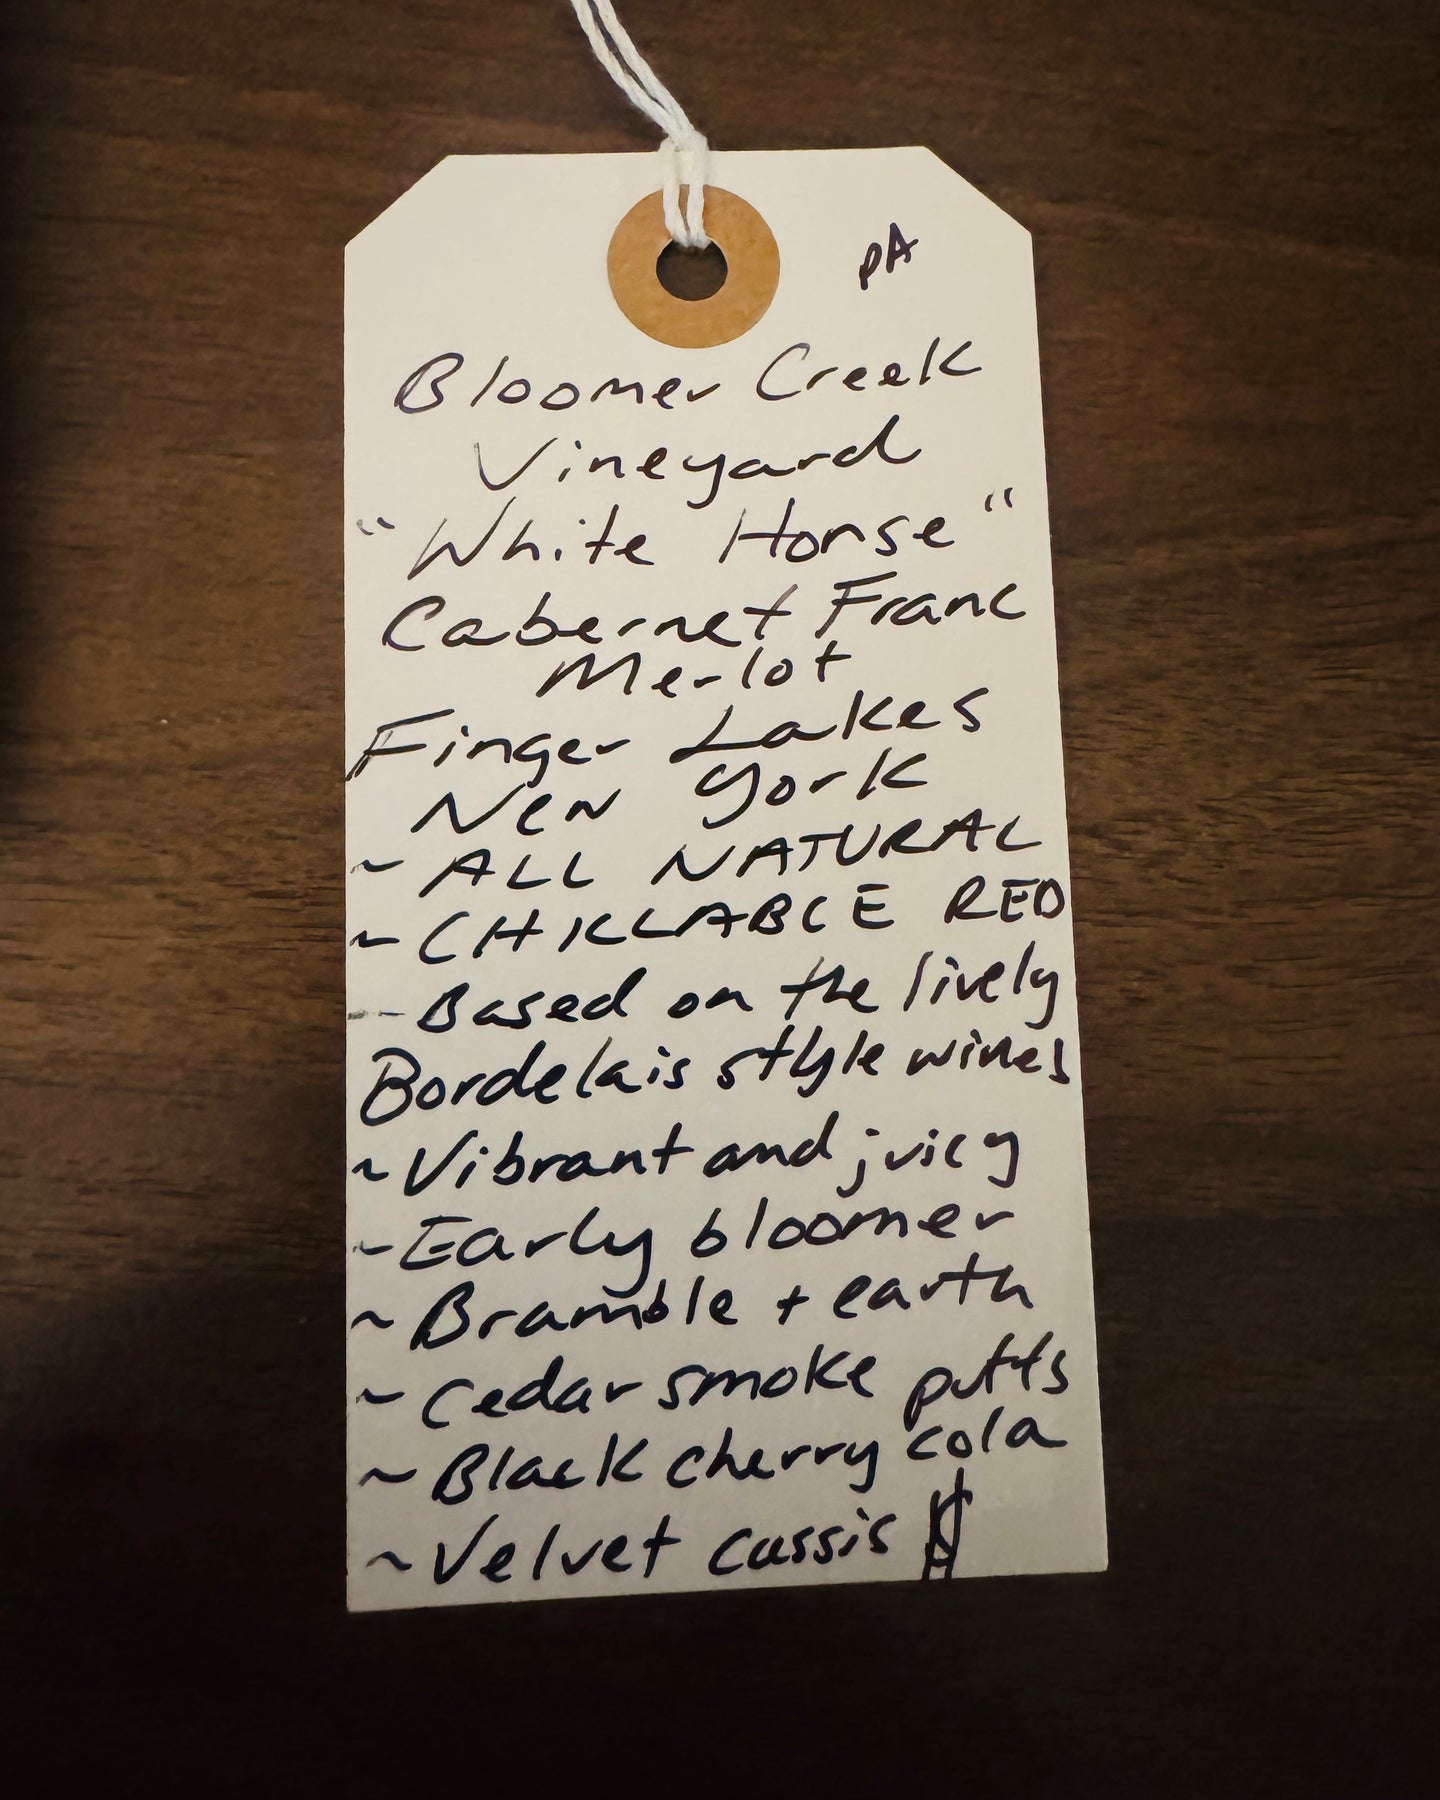 PA
Bloomer Creek
Vineyard
"White Horse"
Cabernet Franc
Merlot
Finger Lakes
New York
~ ALL NATURAL
~ CHILLABLE RED
~ Based on the lively
Bordelais style wines
~ Vibrant and juicy
~ Early bloomer
~ Bramble + earth
~ Cedar smoke puffs
~ Black cherry cola
~ Velvet cassis